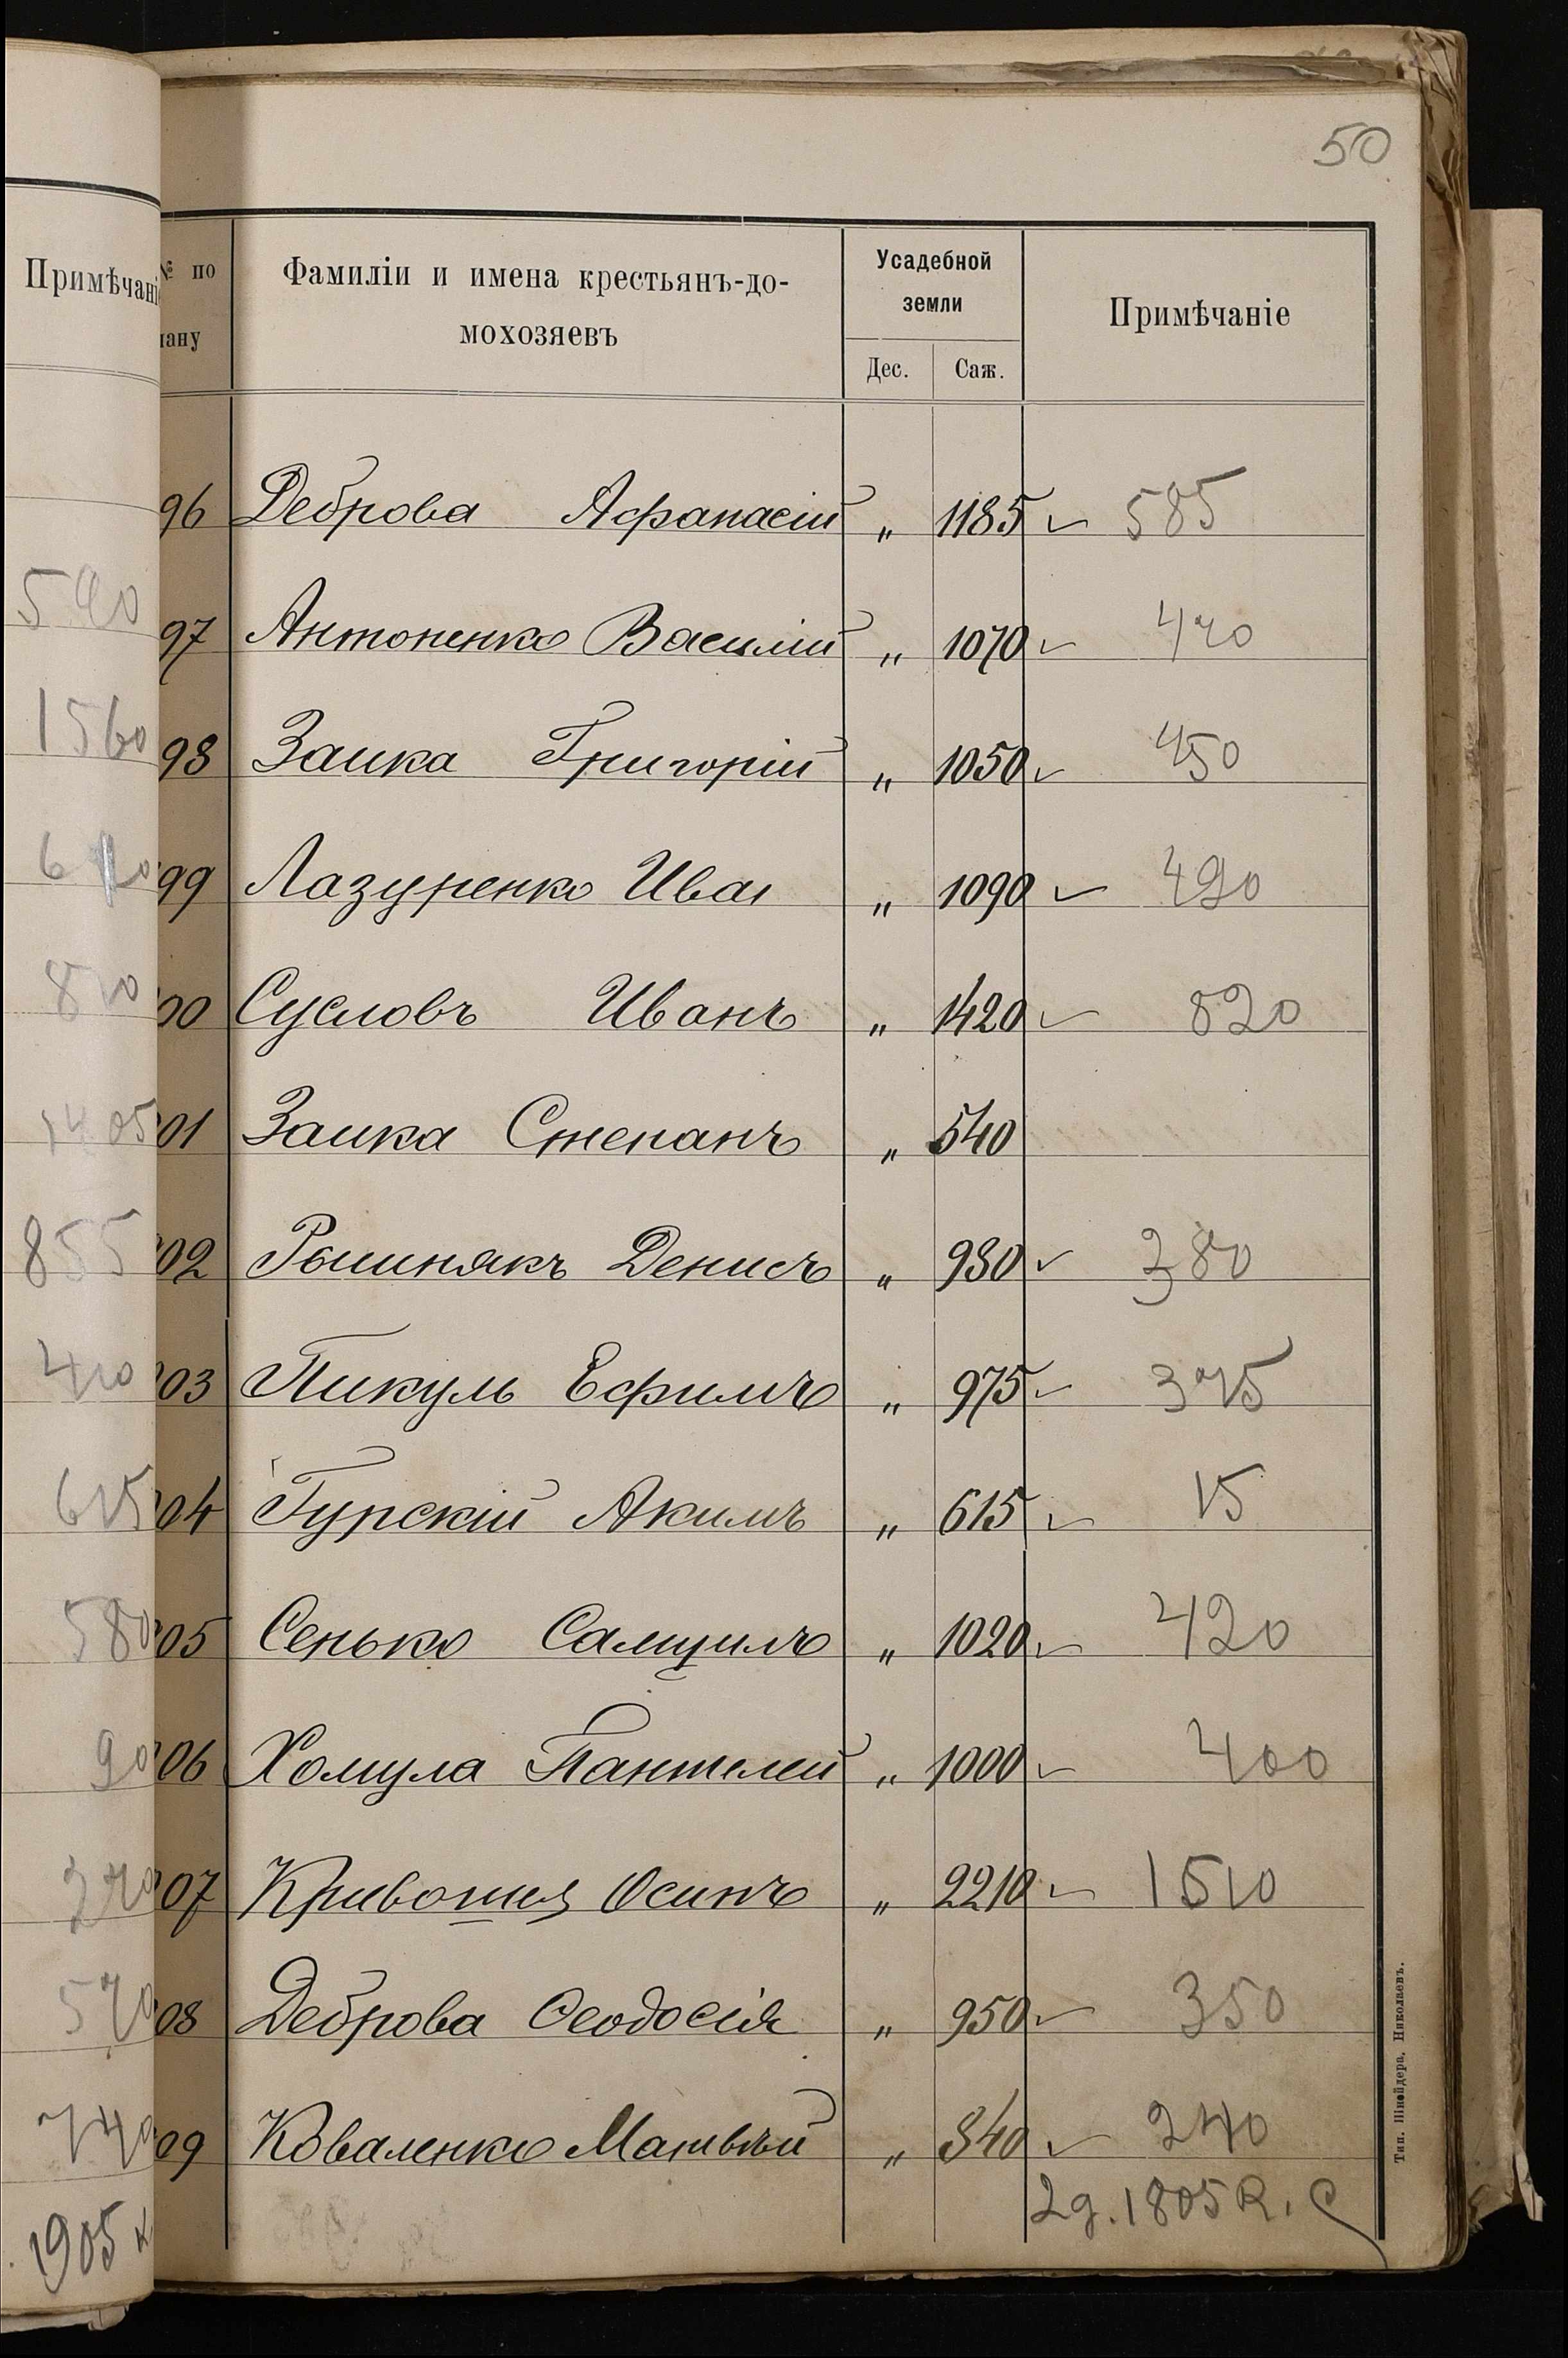 50
Примѣчані
№ по
лану
Фамиліи и имена крестьянъ-до-
мохозяевъ
Усадебной
земли
Дес.
Саж.
Примѣчаніе
96 Деброва Афанасій " 1185 ✓ 585
540
97 Антоненко Василій " 1070 ✓ 470
1560
98 Заика Григорій " 1050 ✓ 450
99 Лазуренко Иван " 1090 ✓ 490
810
00 Сусловъ Иванъ " 1420 ✓ 820
1405
01 Заика Степанъ " 540
855
02 Рышнякъ Денисъ " 980 ✓ 380
410
03 Пикуль Ефимъ " 975 ✓ 375
615
04 Гурскій Акимъ " 615 ✓ 15
580
05 Сенько Самуилъ " 1020 ✓ 420
90
06 Хомула Пантелей " 1000 ✓ 400
270
07 Кривошия Осипъ " 2210 ✓ 1510
570
08 Деброва Феодосія " 950 ✓ 350
740
09 Коваленко Матвѣй " 840 ✓ 240
1905 к
2g. 1805 R.
Тип. Шнейдера, Николаевъ.